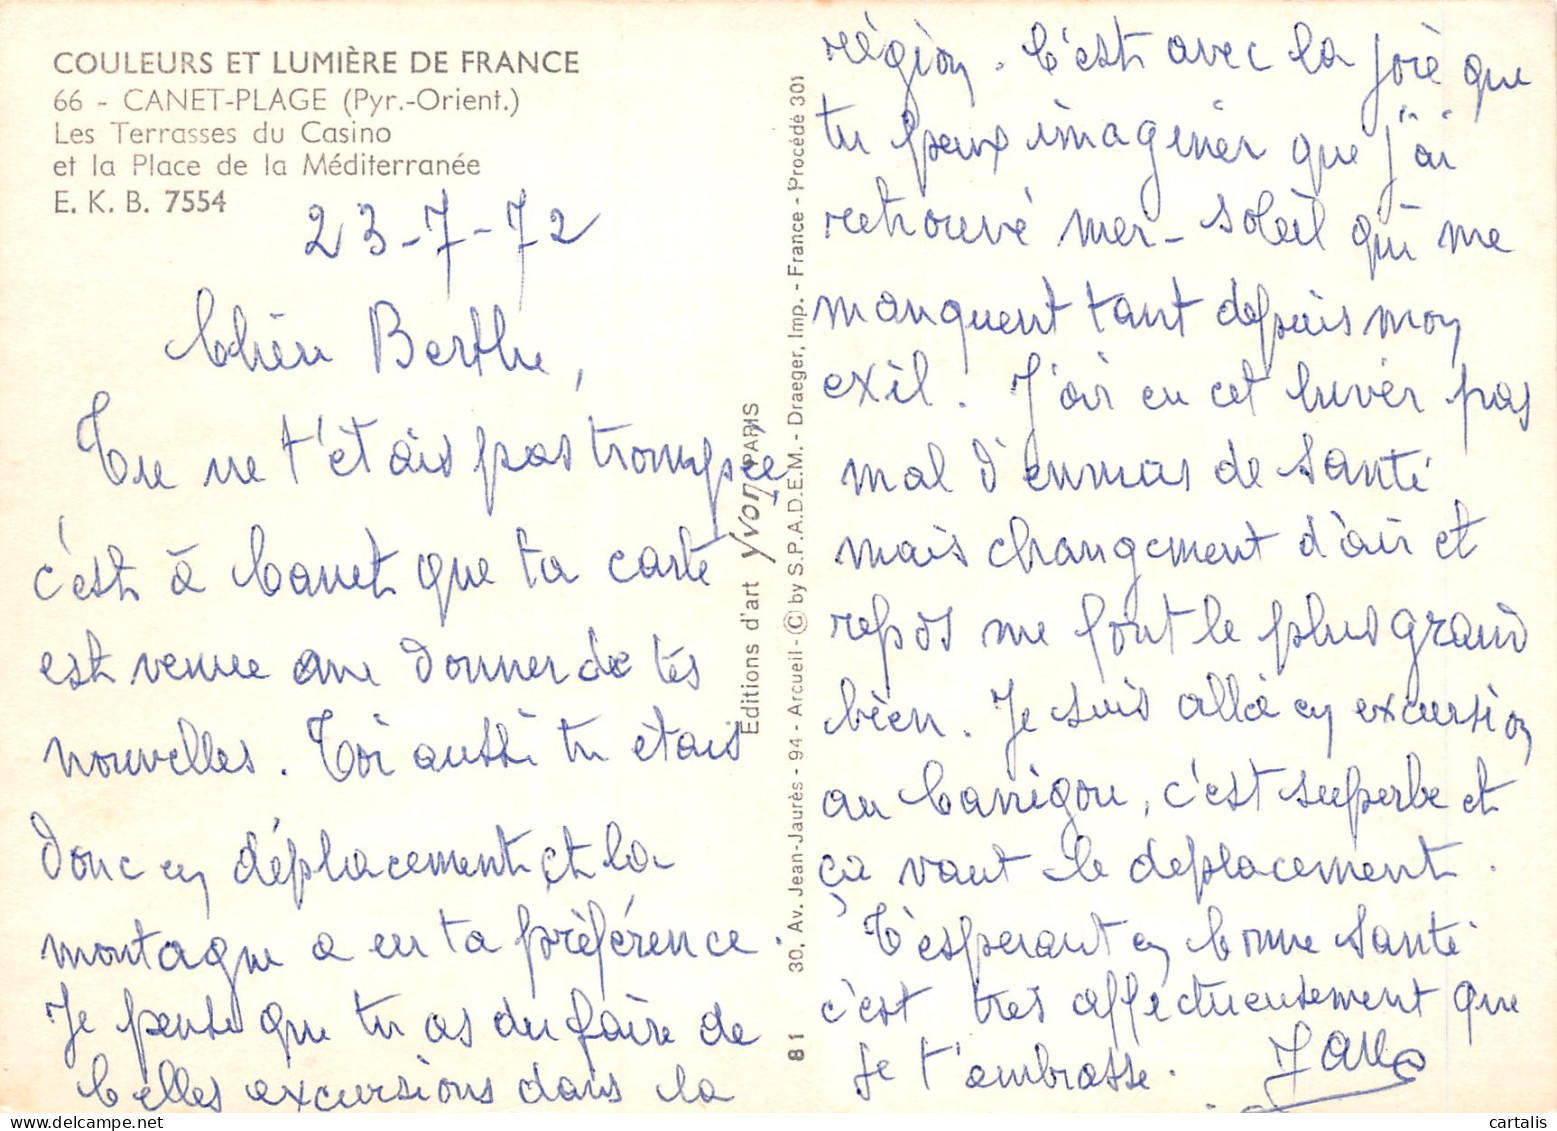 COULEURS ET LUMIÈRE DE FRANCE
66 - CANET-PLAGE (Pyr.-Orient.)
Les Terrasses du Casino
et la Place de la Méditerranée
E. K. B. 7554
23-7-72
Chère Berthe,
Tu ne t'étais pas trompée
c'est à Canet que ta carte
est venue me donner de tes
nouvelles. Toi aussi tu étais
donc en déplacement et la
montagne a eu ta préférence.
Je pense que tu as du faire de
belles excursions dans la
Editions d'art Yvon PARIS
81 30, Av. Jean-Jaurès - 94 - Arcueil - © by S.P.A.D.E.M. - Draeger, Imp. - France - Procédé 301
région. C'est avec la joie que
tu peux imaginer que j'ai
retrouvé mer - soleil qui me
manquent tant depuis mon
exil. J'ai eu cet hiver pas
mal d'ennuis de santé
mais changement d'air et
repos me font le plus grand
bien. Je suis allée en excursion
au Canigou, c'est superbe et
ça vaut le déplacement.
T'espérant en bonne santé
c'est très affectueusement que
je t'embrasse.